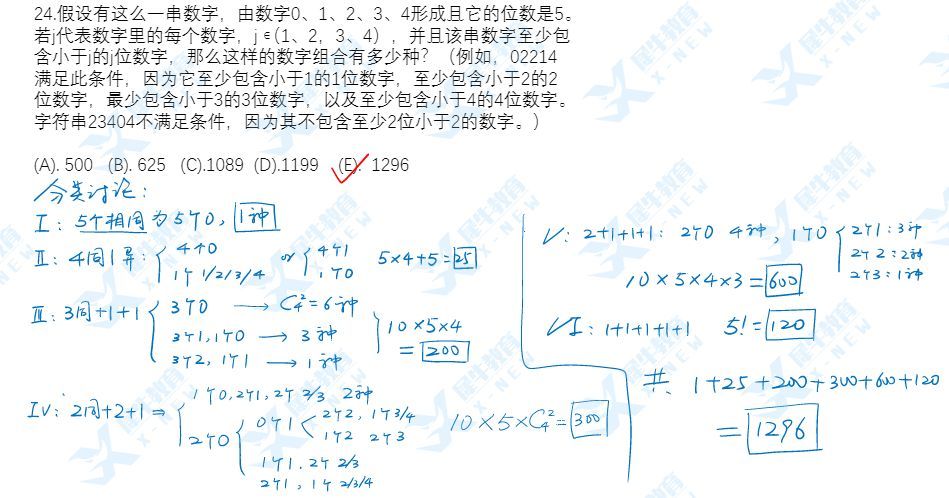 24.假设有这么一串数字，由数字0、1、2、3、4形成且它的位数是5。
若j代表数字里的每个数字，j∈(1、2，3、4），并且该串数字至少包
含小于j的j位数字，那么这样的数字组合有多少种？（例如，02214
满足此条件，因为它至少包含小于1的1位数字，至少包含小于2的2
位数字，最少包含小于3的3位数字，以及至少包含小于4的4位数字。
字符串23404不满足条件，因为其不包含至少2位小于2的数字。）
(A). 500 (B). 625 (C).1089 (D).1199 (E). 1296
分类讨论：
I：5个相同为5个0，1种
II：4同1异：
4个0
1个1/2/3/4
or
4个1
1个0
5×4+5=25
III：3同+1+1
3个0 → C₄²=6种
3个1,1个0 → 3种
3个2, 1个1 → 1种
10×5×4
=200
IV：2同+2+1 ⇒
1个0,2个1,2个2/3 2种
2个0
0个1
2个2, 1个3/4
1个2 2个3
1个1. 2个2/3
2个1, 1个2/3/4
10×5×C₄²=300
V：2+1+1+1：2个0 4种，1个0
2个1：3种
2个2：2种
2个3：1种
10×5×4×3=600
VI：1+1+1+1+1 5!=120
共 1+25+200+300+600+120
=1296
犀牛教育
X-NEW